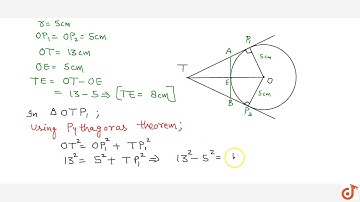 r = 5cm
OP₁ = OP₂ = 5cm
OT = 13cm
OE = 5cm
TE = OT - OE
= 13 - 5 ⇒ [TE = 8cm]
In Δ OTP₁ ;
Using Pythagoras theorem;
OT² = OP₁² + TP₁²
13² = 5² + TP₁² ⇒ 13² - 5² =
P₁
A
5cm
T
E
O
B
5cm
P₂